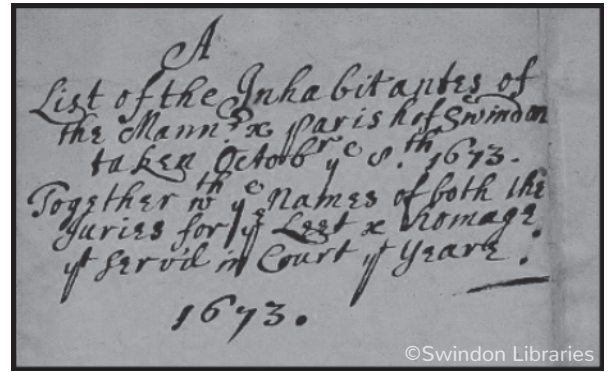 A
List of the Inhabitantes of
the Mannr & Parish of Swindon
taken Octobr ye 8.th 1673.
Together wth ye Names of both the
Juries for ye Leet & Homage
yt serv'd in Court yt Yeare.
1673.
©Swindon Libraries